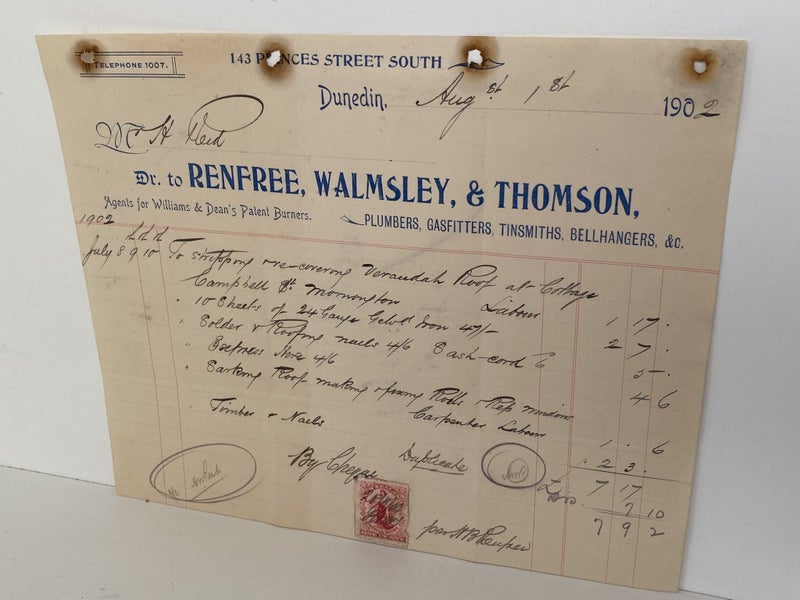 TELEPHONE 1007.
143 PRINCES STREET SOUTH
Dunedin, Augst 1st 1902
Mr H Reid
Dr. to RENFREE, WALMSLEY, & THOMSON,
Agents for Williams & Dean's Patent Burners.
PLUMBERS, GASFITTERS, TINSMITHS, BELLHANGERS, &c.
1902
July 8 9 10 To stripping & re-covering Verandah Roof at Cottage
Campbell St Mornington Labour 1 17 .
" 10 Sheets of 24 Gauge Galvd Iron 47/- 2 7 .
" Solder & Roofing nails 4/6 Sash-cord 5 .
" Express Hire 4/6 4 6
" making & fixing & Rep windows
Carpenter Labour 1 . 6
Timber & Nails . 2 3 .
By Cheque Duplicate 7 17
7 10
7 9 2